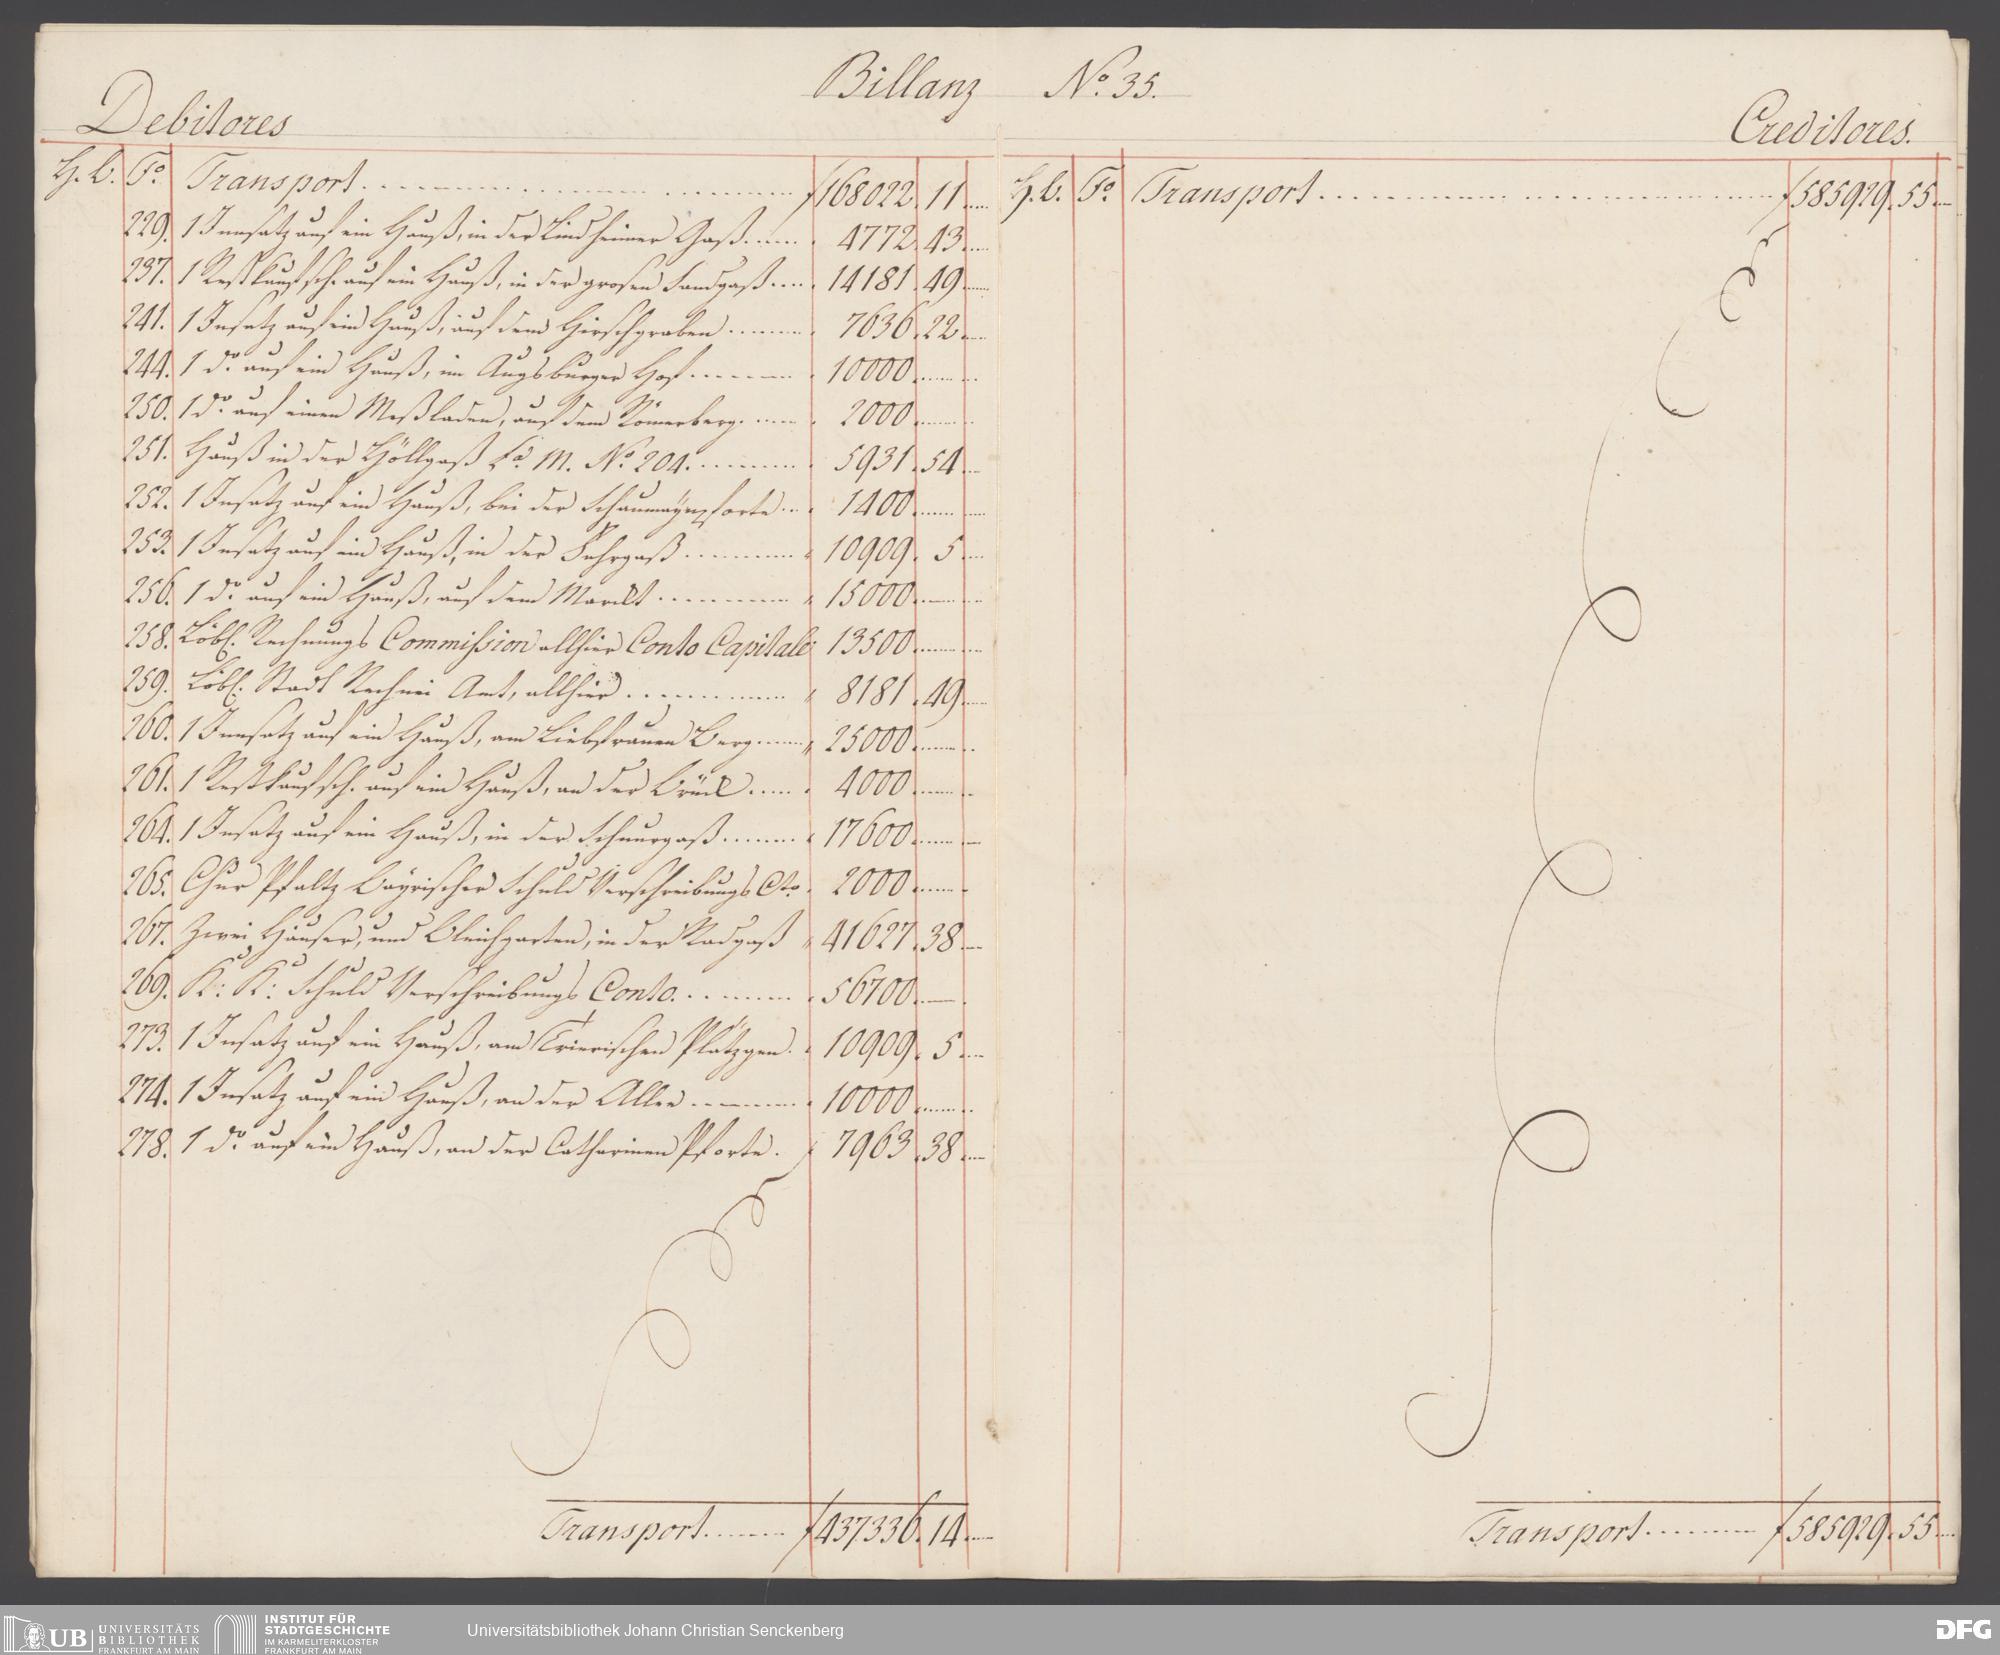 Billanz No. 35.
Debitores
H. b. Fo. Transport . . . . f 168022. 11
229. 1 Innsatz auf ein Hauß, in der Lindheimer Gaß . . . 4772. 43
237. 1 Restkaufsch. auf ein Hauß, in der grosen Sandgaß . . . 14181. 49
241. 1 Insatz auf ein Hauß, auf dem Hirschgraben . . . 7636. 22
244. 1 do. auf ein Hauß, im Augsburger Hof . . . 10000
250. 1 do. auf einen Meßladen, auf dem Römerberg . . . 2000
251. Hauß in der Höllgaß La. M. No. 204. . . . 5931. 54
252. 1 Insatz auf ein Hauß, bei der Schaumaÿnpforte . . 1400
253. 1 Insatz auf ein Hauß, in der Fahrgaß . . . 10909. 5
256. 1 do. auf ein Hauß, auf dem Marckt . . . 15000
258. Löbl. Rechnungs Commission allhier Conto Capitale 13500
259. Löbl. Stadt Rechnei Amt, allhier . . . 8181. 49
260. 1 Innsatz auf ein Hauß, am Liebfrauen Berg . . . 25000
261. 1 Restkaufsch. auf ein Hauß, an der Brück . . . 4000
264. 1 Insatz auf ein Hauß, in der Schnurgaß . . . 17600
265. Chur Pfaltz Bayrischer Schuld Verschreibungs Cto. 2000
267. Zwei Häuser, und Bleichgarten, in der Radgaß 41627. 38
269. K: K: Schuld Verschreibungs Conto. . . . 56700
273. 1 Insatz auf ein Hauß, am Trierischen Plätzgen. 10909. 5
274. 1 Insatz auf ein Hauß, an der Allee . . . 10000
278. 1 do. auf ein Hauß, an der Catharinen Pforte. 7963. 38
Transport . . . f 437336. 14
Creditores.
H. b. Fo. Transport . . . . f 585929. 55
Transport . . . f 585929. 55
UB UNIVERSITÄTS
BIBLIOTHEK
FRANKFURT AM MAIN
INSTITUT FÜR
STADTGESCHICHTE
IM KARMELITERKLOSTER
FRANKFURT AM MAIN
Universitätsbibliothek Johann Christian Senckenberg
DFG